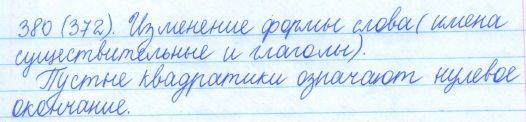 380 (372). Изменение формы слова (имена
существительные и глаголы).
Пустые квадратики означают нулевое
окончание.